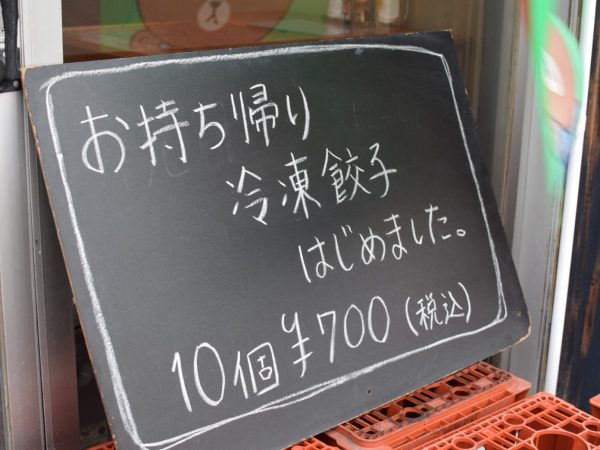 お持ち帰り
冷凍餃子
はじめました。
10個¥700(税込)